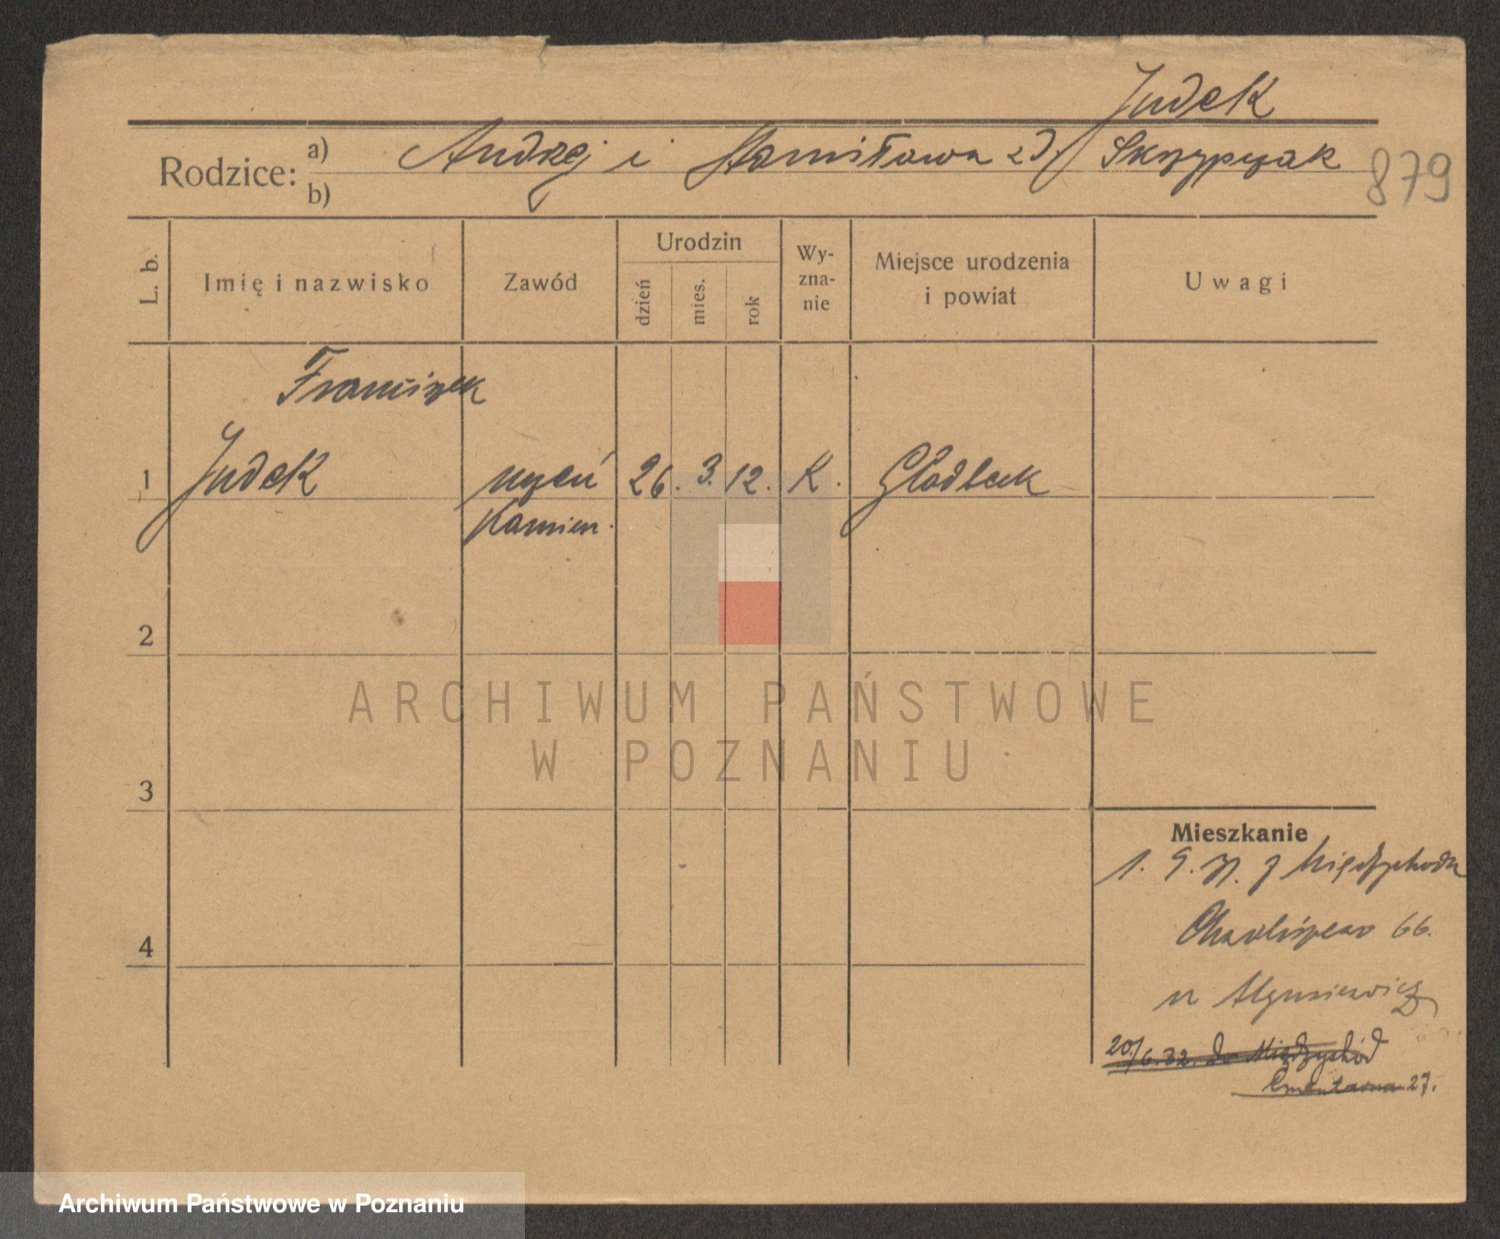 Judek
Rodzice: a) Andrzej i Stanisława zd. Skrzypczak
b)
879
L. b.
Imię i nazwisko
Zawód
Urodzin
dzień
mies.
rok
Wy-
zna-
nie
Miejsce urodzenia
i powiat
Uwagi
Franciszek
1 Judek uczeń 26. 3. 12. K. Gladbeck
kamien.
2
3
4
ARCHIWUM PAŃSTWOWE
W POZNANIU
Mieszkanie
1. 9. z Międzychodu
66.
20/6.32. do Międzychód
Cmentarna 27.
Archiwum Państwowe w Poznaniu